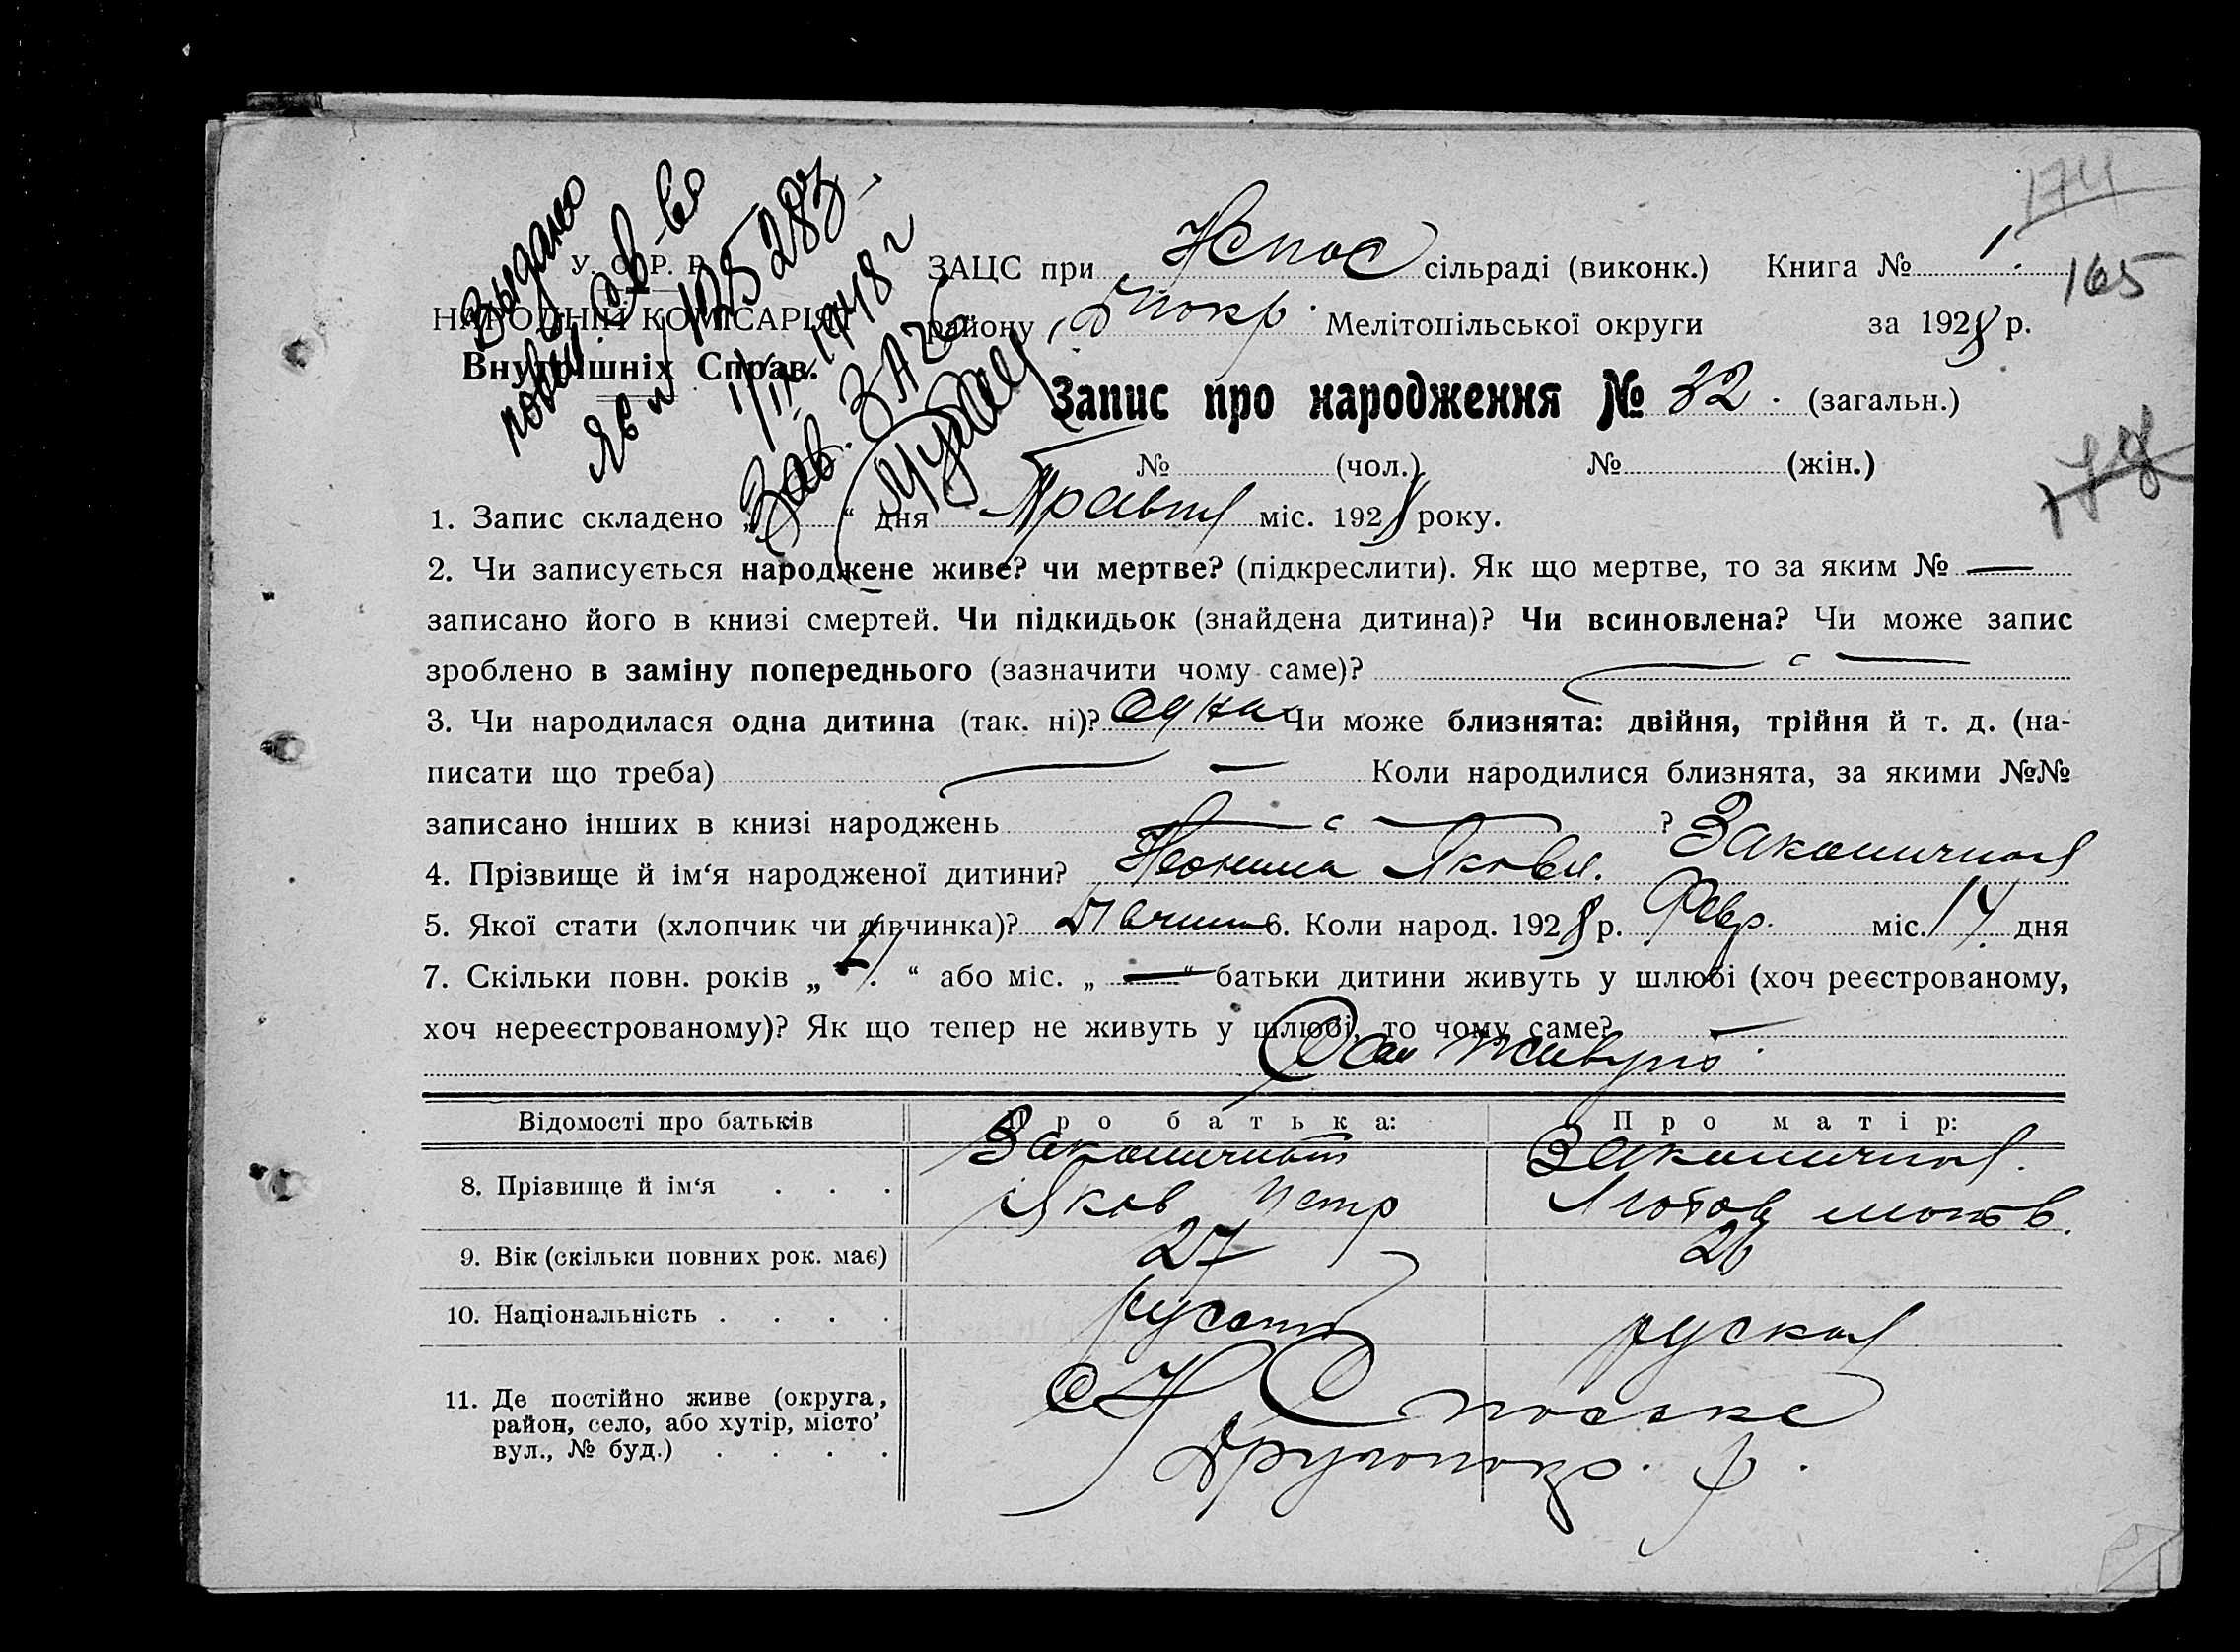 174
165
Выдано
повт. св-во
ЯБ № 105283
1948 г
Зав. ЗАГС
У. С. Р. Р.
НАРОДНІЙ КОМІСАРІЯТ
Внутрішніх Справ.
ЗАЦС при Нспас сільраді (виконк.) Книга № 1.
району Мелітопільської округи за 1928 р.
Запис про народження № 32. (загальн.)
№ (чол.) № (жін.)
1. Запис складено „ “ дня Травня міс. 1928 року.
2. Чи записується народжене живе? чи мертве? (підкреслити). Як що мертве, то за яким № —
записано його в книзі смертей. Чи підкидьок (знайдена дитина)? Чи всиновлена? Чи може запис
зроблено в заміну попереднього (зазначити чому саме)?
3. Чи народилася одна дитина (так. ні)? одна Чи може близнята: двійня, трійня й т. д. (на-
писати що треба) — Коли народилися близнята, за якими №№
записано інших в книзі народжень ?
4. Прізвище й ім‘я народженої дитини? Яковл. Закаличная
5. Якої стати (хлопчик чи дівчинка)? 6. Коли народ. 1928 р. Февр. міс. 14 дня
7. Скільки повн. років „ “ або міс. „ — “ батьки дитини живуть у шлюбі (хоч реєстрованому,
хоч нереєстрованому)? Як що тепер не живуть у шлюбі, то чому саме? —
живуть
Відомості про батьків Про батька: Про матір:
8. Прізвище й ім‘я . . . Яков Петр
9. Вік (скільки повних рок. має) 27 26
10. Національність . . . . руская
11. Де постійно живе (округа,
район, село, або хутір, місто’
вул., № буд.) . . . .
с Н Спаське
р.